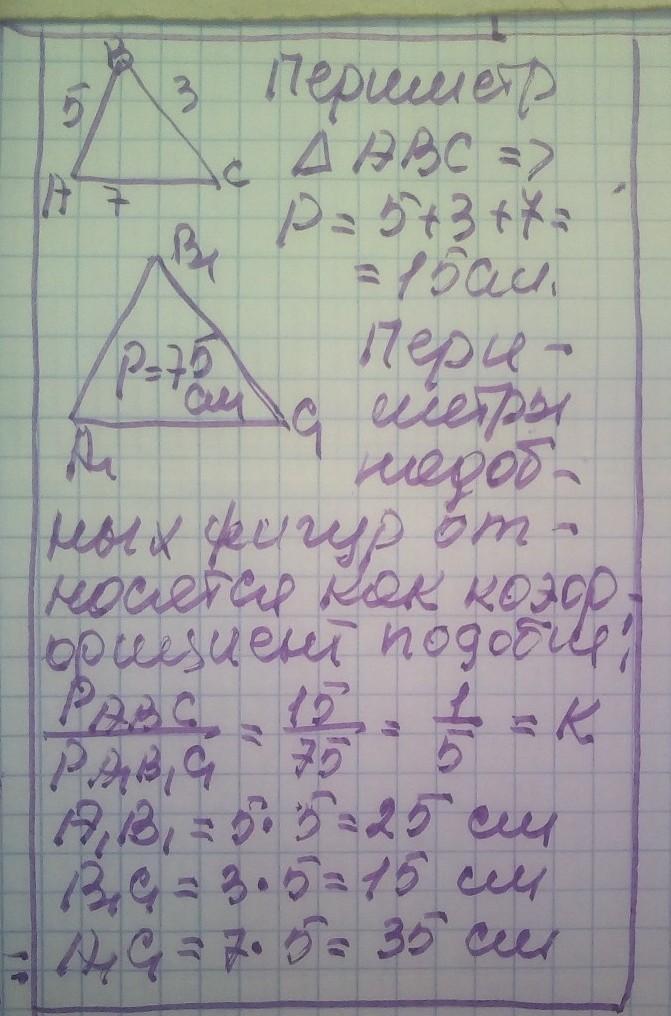 B
5 3
A 7 C
Периметр
Δ ABC =>
P = 5+3+7=
=15см.
B₁
P=75
см
A₁ C₁
Пери-
метры
подоб-
ных фигур от-
носятся как коэф-
фициент подобия:
PABC / PA₁B₁C₁ = 15/75 = 1/5 = K
A₁B₁ = 5·5=25 см
B₁C₁ = 3·5=15 см
A₁C₁ = 7·5= 35 см